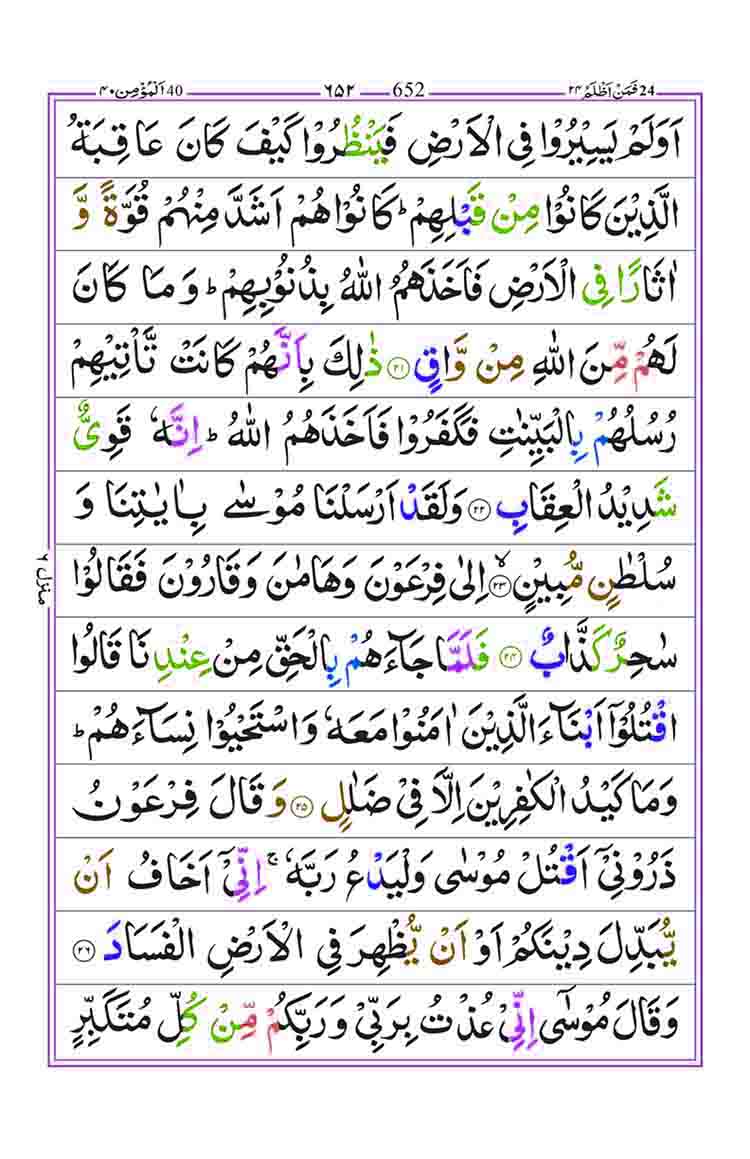 فَمَنْ اَظْلَمُ ۲۴ 24 652 ۶۵۲ اَلْمُؤْمِن ۴۰ 40
اَوَلَمْ يَسِيْرُوْا فِى الْاَرْضِ فَيَنْظُرُوْا كَيْفَ كَانَ عَاقِبَةُ
الَّذِيْنَ كَانُوْا مِنْ قَبْلِهِمْ ؕ كَانُوْا هُمْ اَشَدَّ مِنْهُمْ قُوَّةً وَّ
اٰثَارًا فِى الْاَرْضِ فَاَخَذَهُمُ اللّٰهُ بِذُنُوْبِهِمْ ؕ وَمَا كَانَ
لَهُمْ مِّنَ اللّٰهِ مِنْ وَّاقٍ ۲۱ ذٰلِكَ بِاَنَّهُمْ كَانَتْ تَّاْتِيْهِمْ
رُسُلُهُمْ بِالْبَيِّنٰتِ فَكَفَرُوْا فَاَخَذَهُمُ اللّٰهُ ؕ اِنَّهٗ قَوِىٌّ
شَدِيْدُ الْعِقَابِ ۲۲ وَلَقَدْ اَرْسَلْنَا مُوْسٰى بِاٰيٰتِنَا وَ
سُلْطٰنٍ مُّبِيْنٍ ۙ ۲۳ اِلٰى فِرْعَوْنَ وَهَامٰنَ وَقَارُوْنَ فَقَالُوْا
سٰحِرٌ كَذَّابٌ ۲۴ فَلَمَّا جَآءَهُمْ بِالْحَقِّ مِنْ عِنْدِنَا قَالُوا
اقْتُلُوْۤا اَبْنَآءَ الَّذِيْنَ اٰمَنُوْا مَعَهٗ وَاسْتَحْيُوْا نِسَآءَهُمْ ؕ
وَمَا كَيْدُ الْكٰفِرِيْنَ اِلَّا فِىْ ضَلٰلٍ ۲۵ وَقَالَ فِرْعَوْنُ
ذَرُوْنِىْۤ اَقْتُلْ مُوْسٰى وَلْيَدْعُ رَبَّهٗ ۚ اِنِّىْۤ اَخَافُ اَنْ
يُّبَدِّلَ دِيْنَكُمْ اَوْ اَنْ يُّظْهِرَ فِى الْاَرْضِ الْفَسَادَ ۲۶
وَقَالَ مُوْسٰٓى اِنِّىْ عُذْتُ بِرَبِّىْ وَرَبِّكُمْ مِّنْ كُلِّ مُتَكَبِّرٍ
منزل ۶